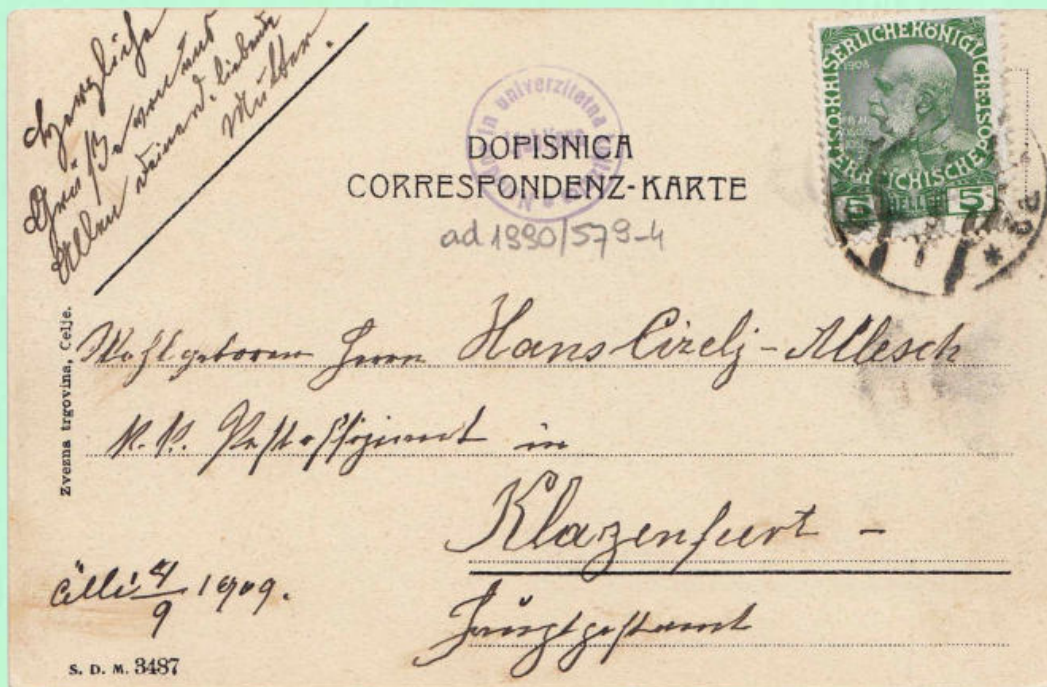 Herzliche
Grüße von uns
Allen deine d. liebende
Mutter.
DOPISNICA
CORRESPONDENZ-KARTE
in univerzitetna
ad 1990/579-4
KAISERLICHE KÖNIGLICHE
ÖSTERREICHISCHE POST
1908
5 HELLER 5
Zvezna trgovina, Celje.
Wohlgeboren Herrn Hans Cizelj-Allesch
K. K. Postoffiziant in
Klagenfurt -
Hauptpostamt
Cilli 4/9 1909.
S. D. M. 3487